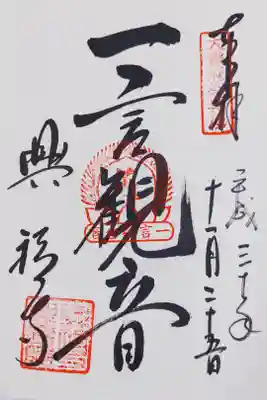 奉拝
平成三十年
十一月二十五日
一言観音
興福寺